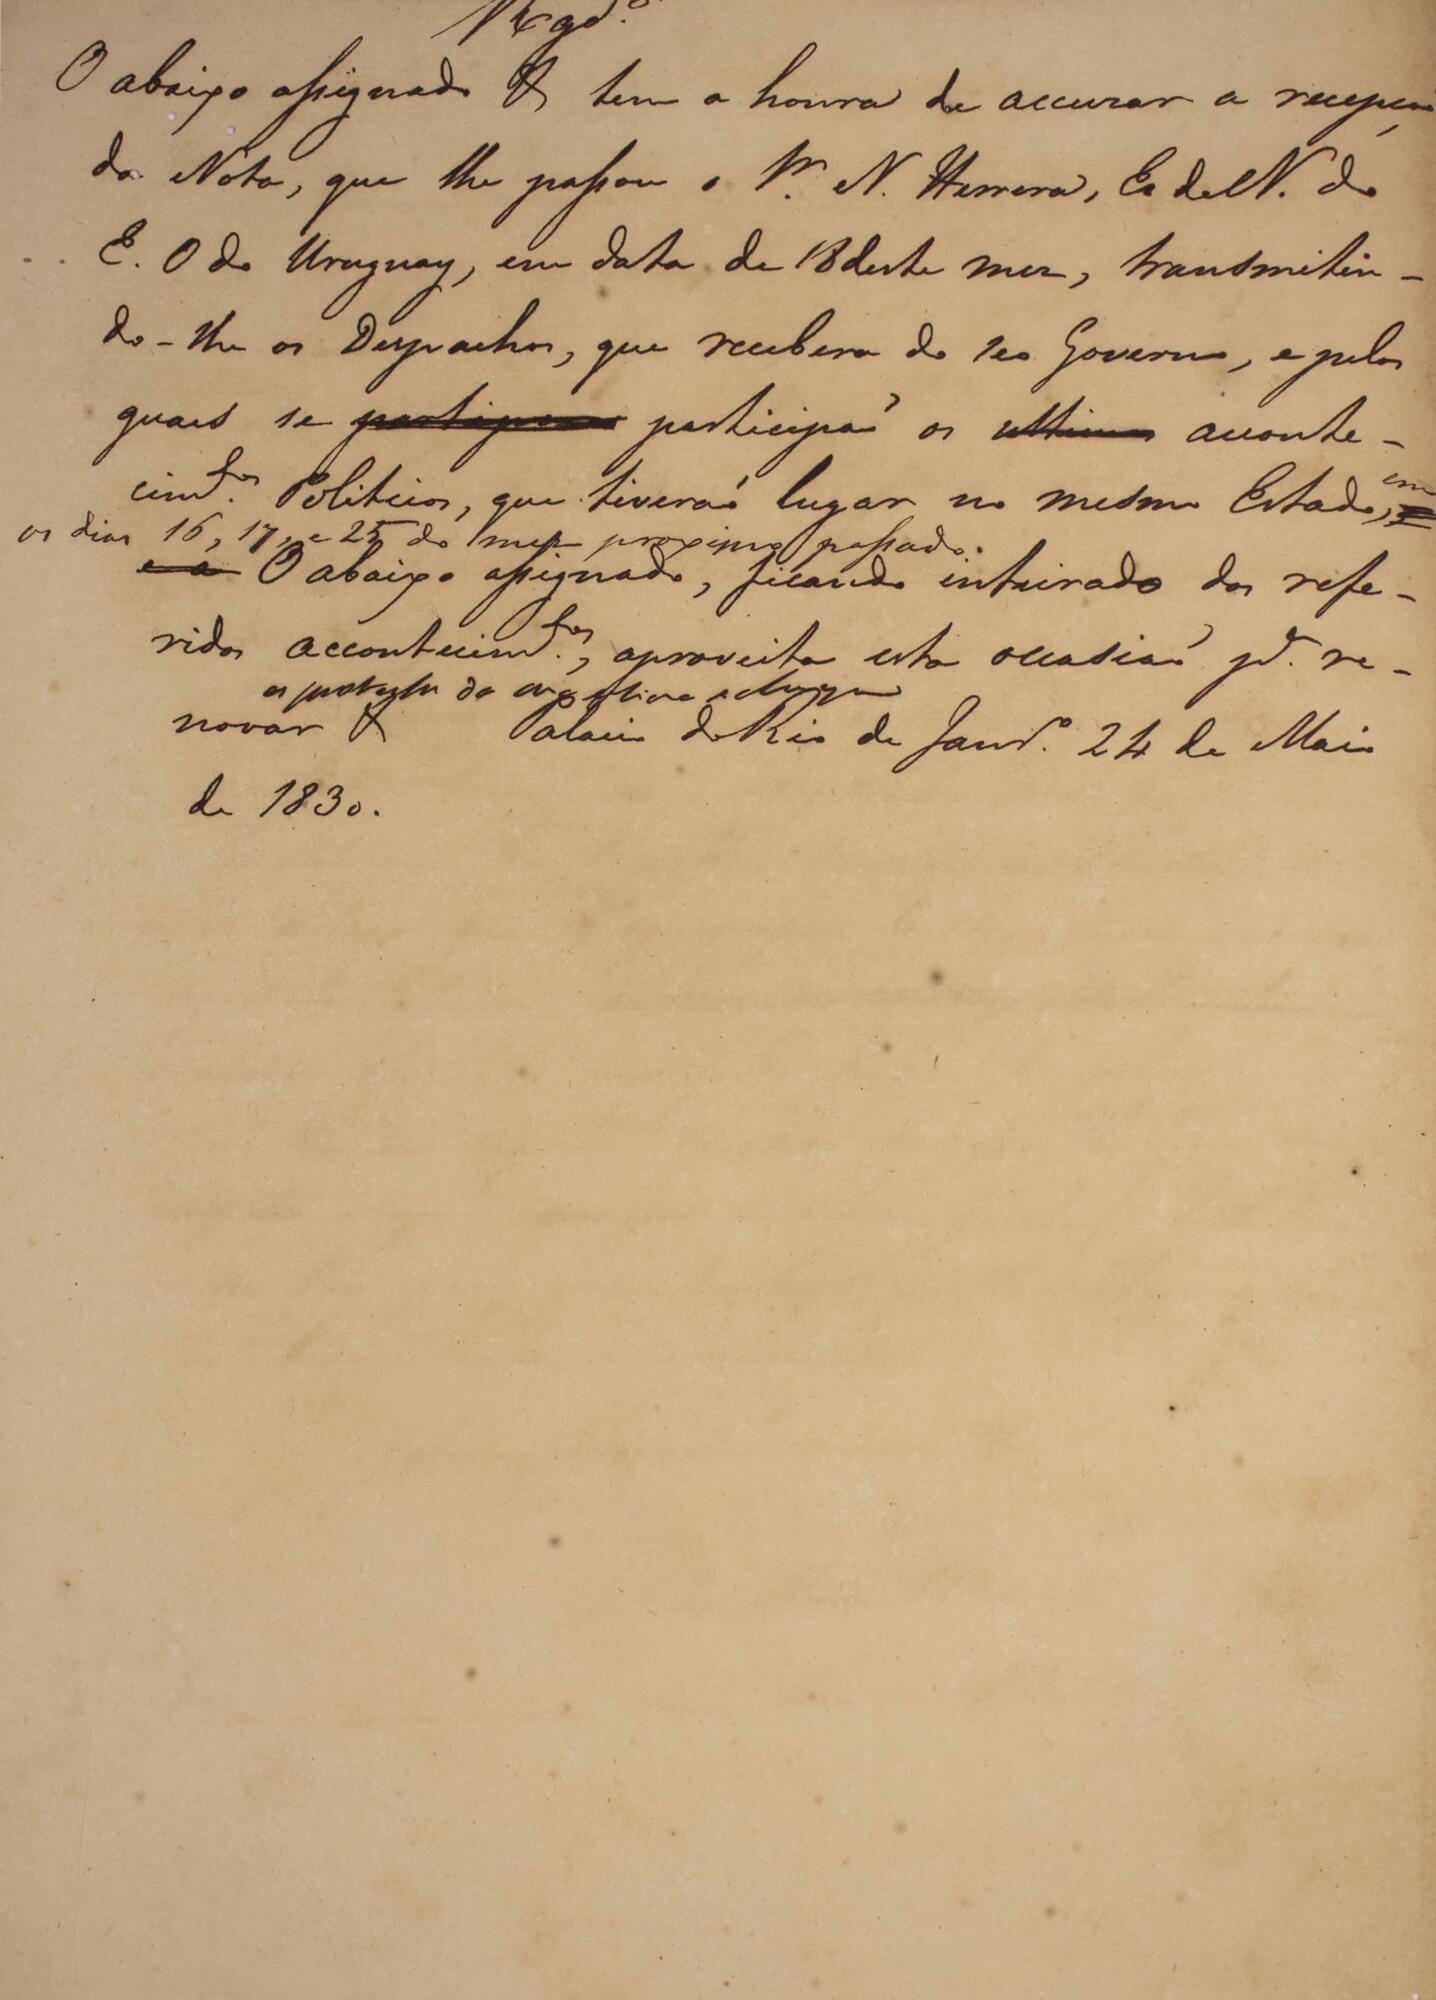 Reg.do
O abaixo assignado & tem a honra de accusar a recepçaõ
da Nota, que lhe passou o Sr. N. Herrera, E. de N. do
E. O do Uruguay, em data de 18 deste mez, transmitin-
do-lhe os Despachos, que recebera do seo Governo, e pelos
quaes se participaõ os ultimos aconte-
cim.tos Politicos, que tiveraõ lugar no mesmo Estado, em
os dias 16, 17, e 25 do mez proximo passado.
e a O abaixo assignado, ficando inteirado dos refe-
ridos accontecim.tos, aproveita esta occasiaõ p.a re-
os protestos da
novar & Palacio do Rio de Jan.ro 24 de Maio
de 1830.